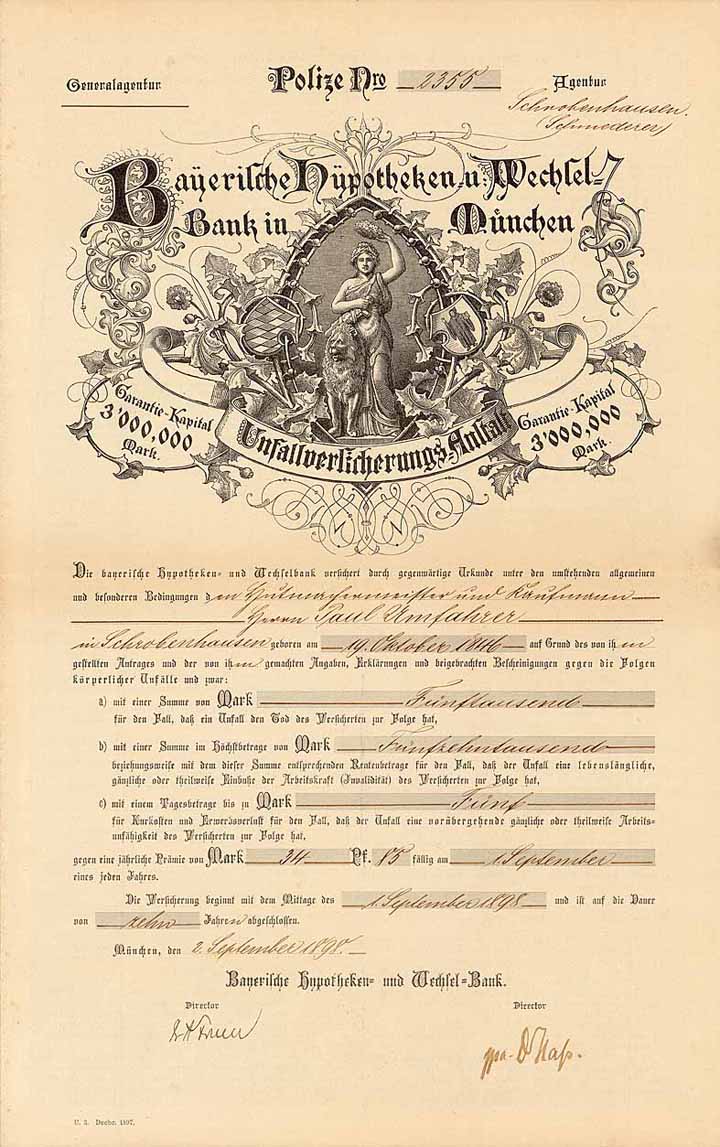 Generalagentur Polize Nro 2355 Agentur
Schrobenhausen
(Schmederer)
Bayerische Hypotheken- u. Wechsel-
Bank in München
Garantie-Kapital
3'000,000
Mark.
Garantie-Kapital
3'000,000
Mark
Unfallversicherungs-Anstalt
Die bayerische Hypotheken- und Wechselbank versichert durch gegenwärtige Urkunde unter den umstehenden allgemeinen
und besonderen Bedingungen den Hutmachermeister und Kaufmann
Herrn Paul Umfahrer
in Schrobenhausen geboren am 19. Oktober 1846 auf Grund des von ihm
gestellten Antrages und der von ihm gemachten Angaben, Erklärungen und beigebrachten Bescheinigungen gegen die Folgen
körperlicher Unfälle und zwar:
a) mit einer Summe von Mark Fünftausend
für den Fall, daß ein Unfall den Tod des Versicherten zur Folge hat,
b) mit einer Summe im Höchstbetrage von Mark Fünfzehntausend
beziehungsweise mit dem dieser Summe entsprechenden Rentenbetrage für den Fall, daß der Unfall eine lebenslängliche,
gänzliche oder theilweise Einbuße der Arbeitskraft (Invalidität) des Versicherten zur Folge hat,
c) mit einem Tagesbetrage bis zu Mark Fünf
für Kurkosten und Erwerbsverlust für den Fall, daß der Unfall eine vorübergehende gänzliche oder theilweise Arbeits-
unfähigkeit des Versicherten zur Folge hat,
gegen eine jährliche Prämie von Mark 34 Pf. 85 fällig am 1. September
eines jeden Jahres.
Die Versicherung beginnt mit dem Mittage des 1. September 1898 und ist auf die Dauer
von zehn Jahren abgeschlossen.
München, den 2. September 1898.
Bayerische Hypotheken- und Wechsel-Bank.
Director Director
ppa.
U. 3. Decbr. 1897.